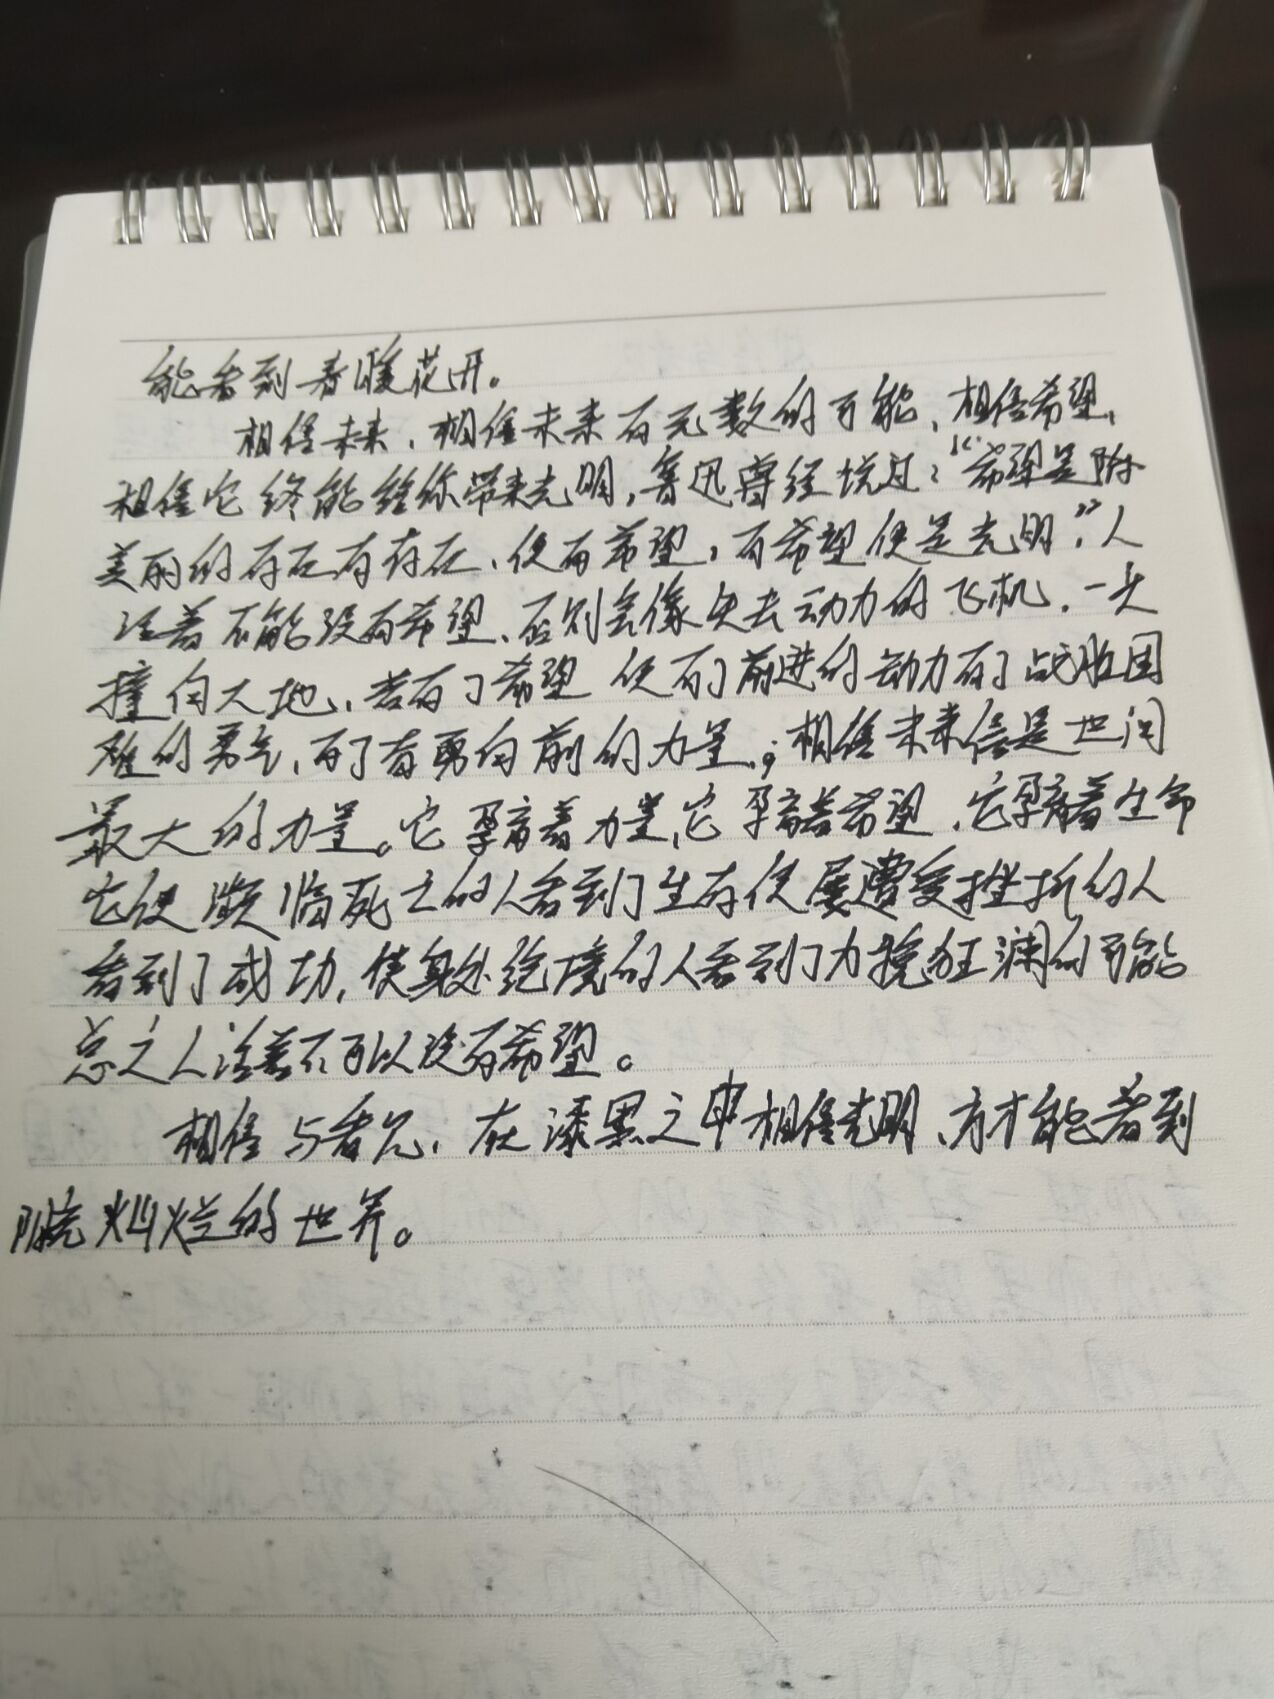 能看到春暖花开。
相信未来,相信未来有无数的可能,相信希望,
相信它终能给你带来光明,鲁迅曾经说过:“希望是附
美丽的存在有存在,便有希望,有希望便是光明”,人
活着不能没有希望,否则会像失去动力的飞机,一头
撞向大地,若有了希望 便有了前进的动力有了战胜困
难的勇气,有了奋勇向前的力量,;相信未来信是世间
最大的力量。它孕育着力量,它孕育着希望,它孕育着生命
它使濒临死亡的人看到了生存使屡遭受挫折的人
看到了成功,使身处绝境的人看到了力挽狂澜的可能
总之人活着不可以没有希望。
相信与看见,在漆黑之中相信光明,方才能看到
灿烂的世界。